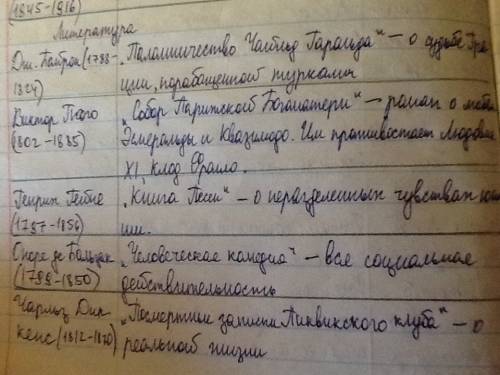 (1845-1916)
Литература
Дж. Байрон (1788- „Паломничество Чайльд Гарольда" – о судьбе Гре
1824) ции, порабощенной турками
Виктор Гюго „Собор Парижской Богоматери" – роман о любви
(1802-1885) Эсмеральды и Квазимодо. Им противостоят Людовик
XI, Клод Фролло.
Генрих Гейне „Книга Песен" – о неразделенных чувствах
(1797-1856) ши.
Оноре де Бальзак „Человеческая комедия" – вся социальная
(1799-1850) действительность
Чарльз Дик „Посмертные записки Пиквикского клуба" – о
кенс (1812-1870) реальной жизни